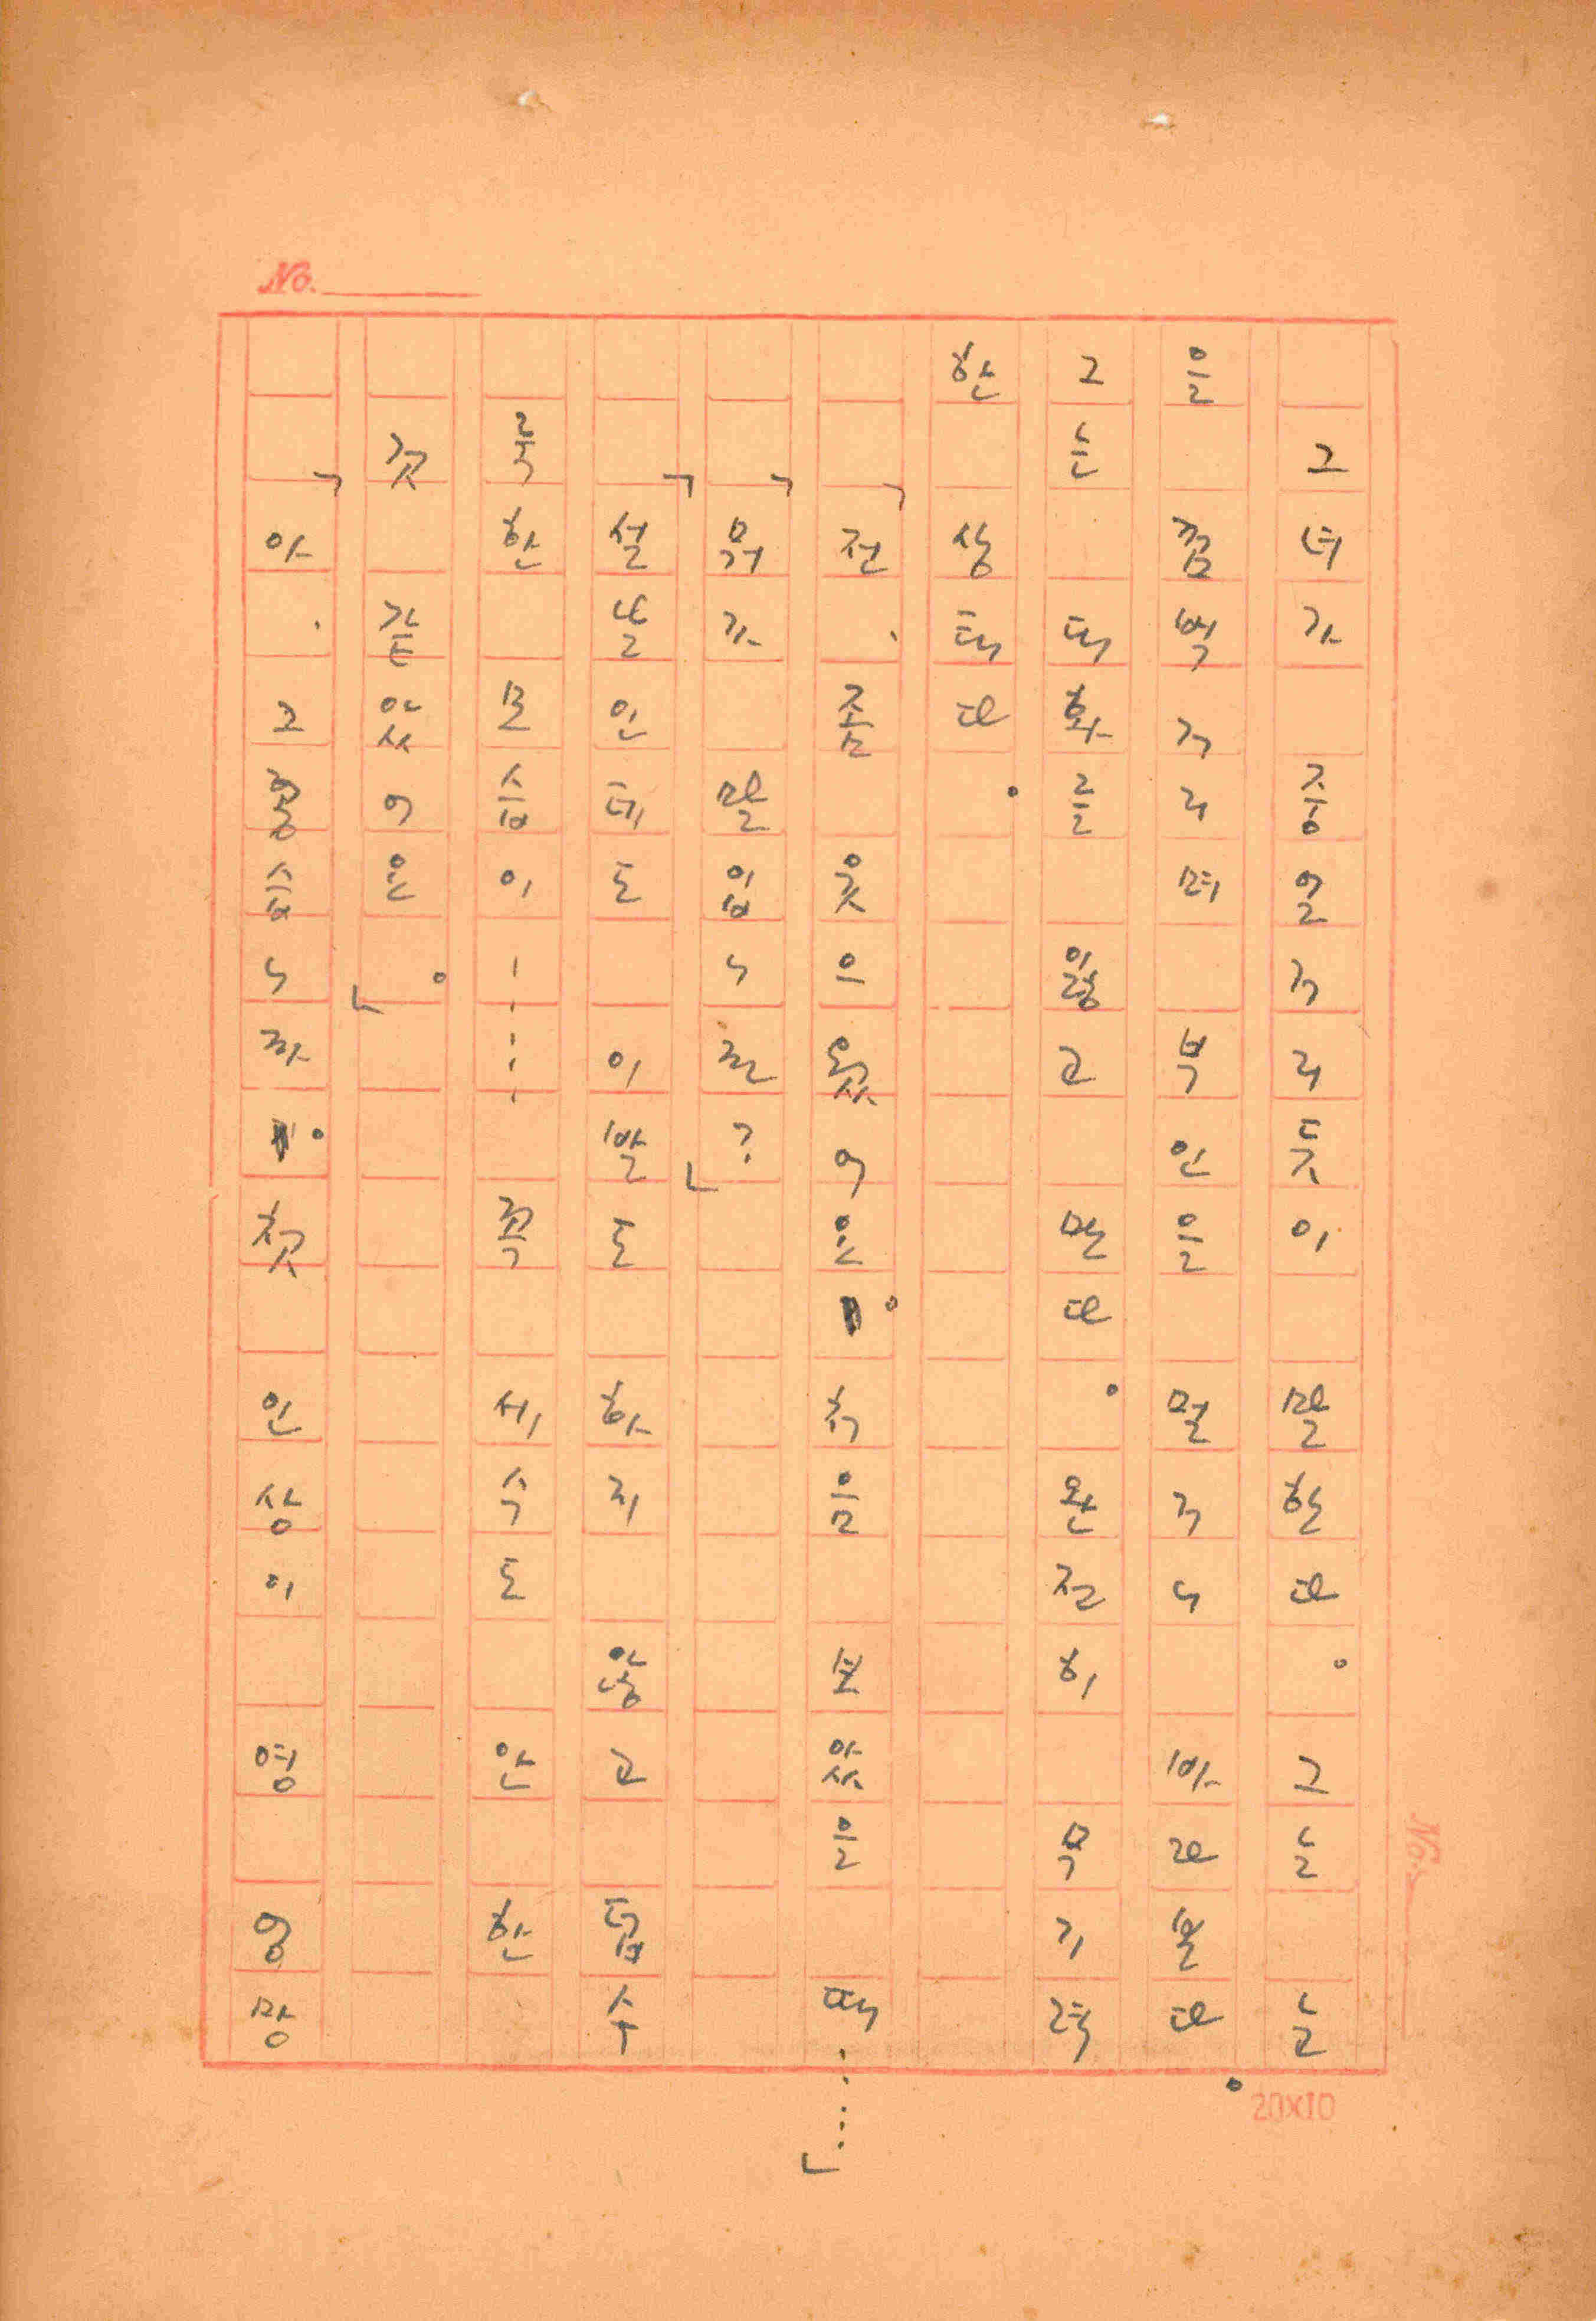 No.
그녀가 중얼거리듯이 말한다。그는 눈
을 껌벅거리며 부인을 멀거니 바라본다。
그는 대화를 잃고 만다。완전히 무기력
한 상태다。
「전、좀 웃으웠어요。처음 보았을 때……」
「뭐가 말입니까?」
「설날인데도 이발도 하지 않고 덥수
룩한 모습이…… 꼭 세수도 안 한
것 같았어요。」
「아、그렇습니까。첫 인상이 영 엉망
20X10